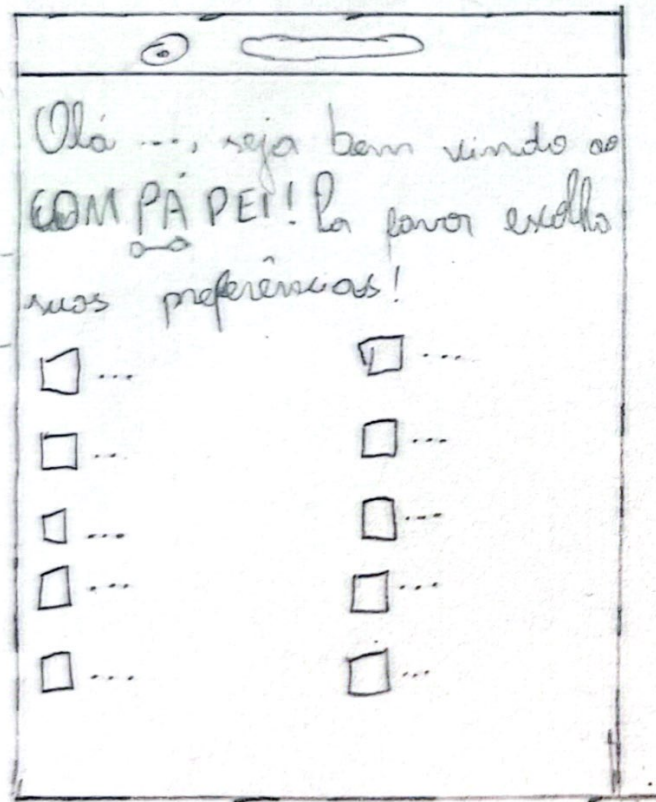 Olá ..., seja bem vindo ao
COMPÁPEI! Por favor escolha
suas preferências!
... ...
... ...
... ...
... ...
... ...